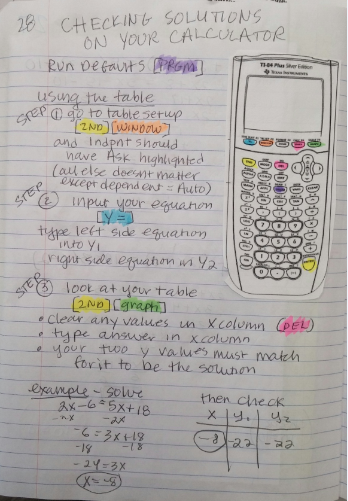 28 CHECKING SOLUTIONS
ON YOUR CALCULATOR
Run Defaults [PRGM]
TI-84 Plus Silver Edition
TEXAS INSTRUMENTS
using the table
STEP ① go to table setup
[2ND] [WINDOW]
and Indpnt should
have Ask highlighted
(all else doesn't matter
except dependent = Auto)
STEP ② input your equation
[Y=]
type left side equation
into Y1
right side equation in Y2
STEP ③ look at your table
[2ND] [graph]
• clear any values in X column (DEL)
• type answer in X column
• your two y values must match
for it to be the solution
example - solve
2x-6=5x+18
-2x -2x
-6=3x+18
-18 -18
-24=3x
x=-8
then check
X Y1 Y2
-8 -22 -22